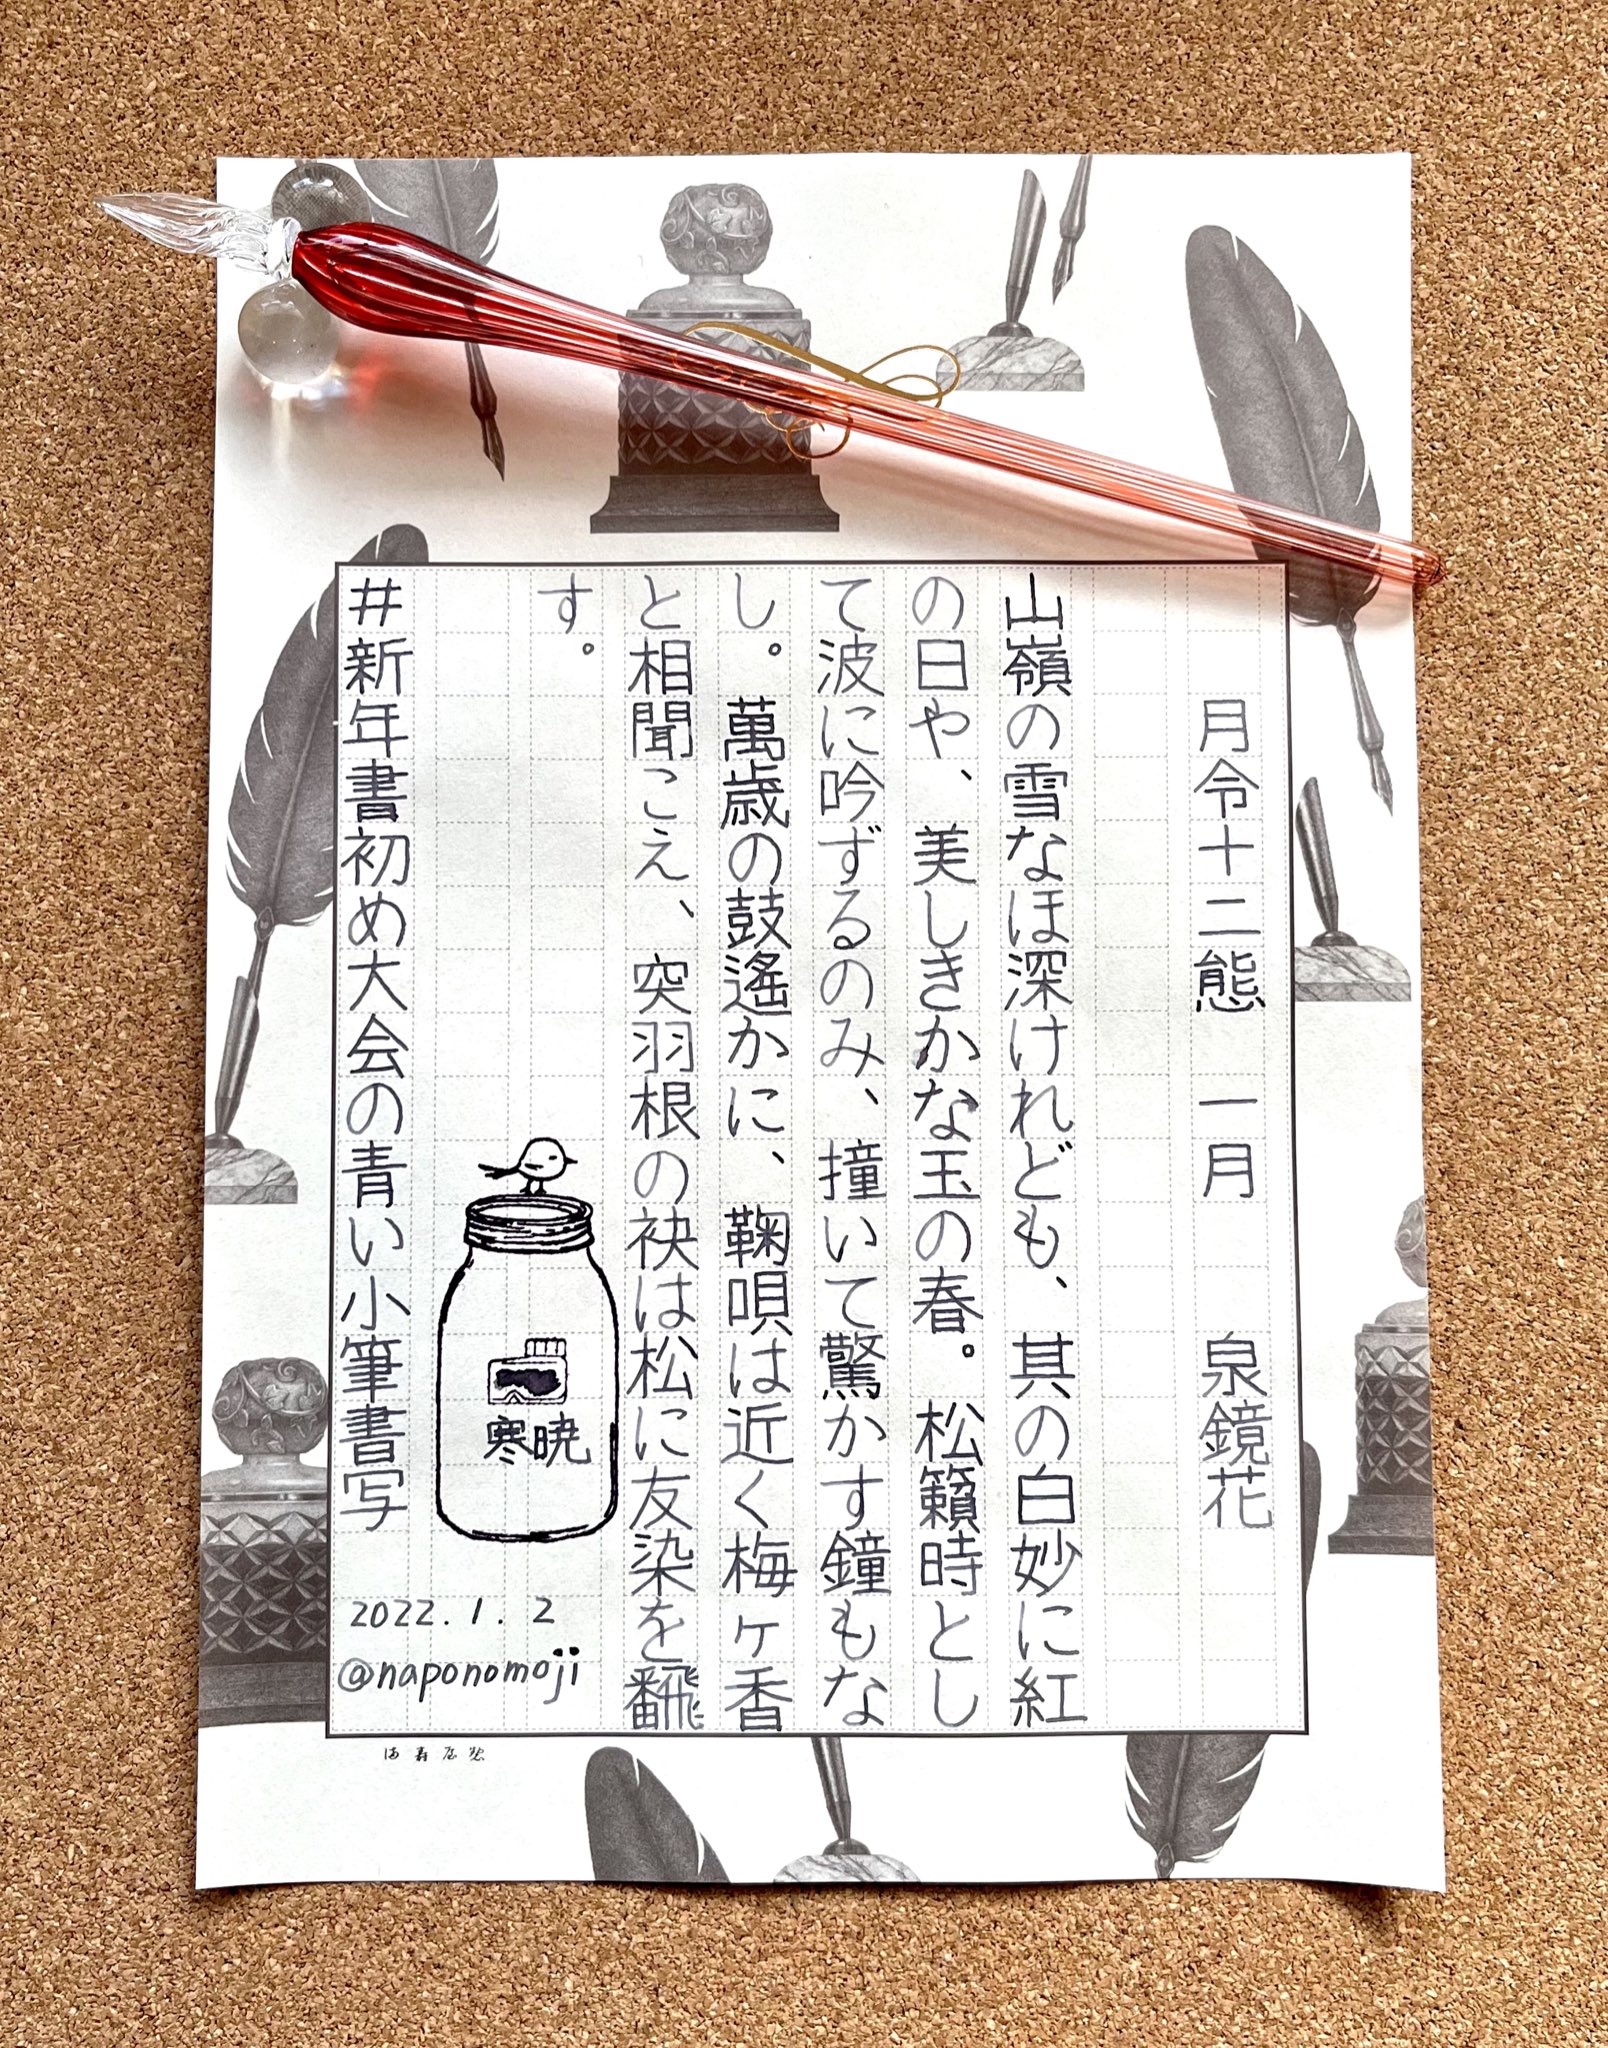 月令十二態　一月　　泉鏡花
山嶺の雪なほ深けれども、其の白妙に紅
の日や、美しきかな玉の春。松籟時とし
て波に吟ずるのみ、撞いて驚かす鐘もな
し。萬歳の鼓遙かに、鞠唄は近く梅ヶ香
と相聞こえ、突羽根の袂は松に友染を飜
す。
寒暁
#新年書初め大会の青い小筆書写
2022.1.2
@naponomoji